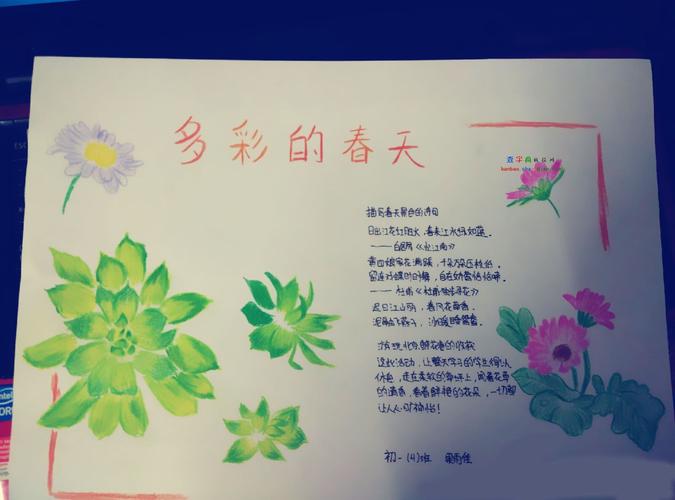 多彩的春天
查字典
描写春天景色的诗句
日出江花红胜火，春来江水绿如蓝。
——白居易《忆江南》
黄四娘家花满蹊，千朵万朵压枝低。
留连戏蝶时时舞，自在娇莺恰恰啼。
——杜甫
迟日江山丽，春风花草香。
泥融飞燕子，沙暖睡鸳鸯。
的收获
这次活动，让整天学习的学生得以
休息，走在柔软的草坪上，闻着花草
的清香，看着鲜艳的花朵，一切都
让人心旷神怡！
初一(4)班